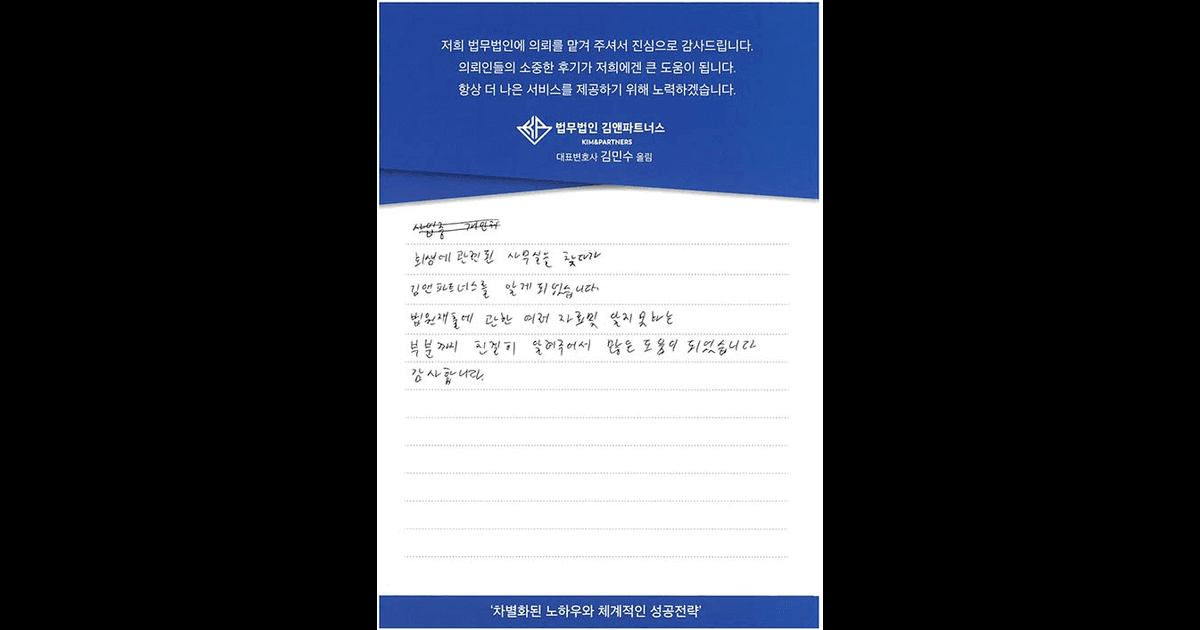 저희 법무법인에 의뢰를 맡겨 주셔서 진심으로 감사드립니다.
의뢰인들의 소중한 후기가 저희에겐 큰 도움이 됩니다.
항상 더 나은 서비스를 제공하기 위해 노력하겠습니다.
법무법인 김앤파트너스
KIM&PARTNERS
대표변호사 김민수 올림
회생에 관련된 사무실을 찾다가
김앤파트너스를 알게 되었습니다.
법원제출에 관한 여러 자료및 알지 못하는
부분까지 친절히 알려주어서 많은 도움이 되었습니다
감사합니다.
'차별화된 노하우와 체계적인 성공전략'